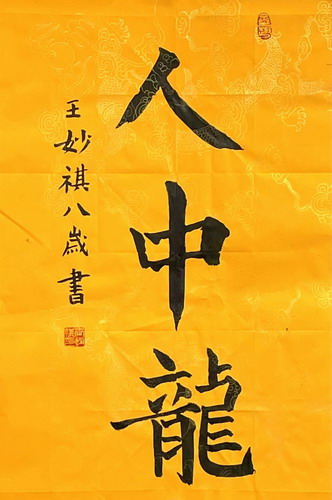 人中龍
王妙祺八歲書